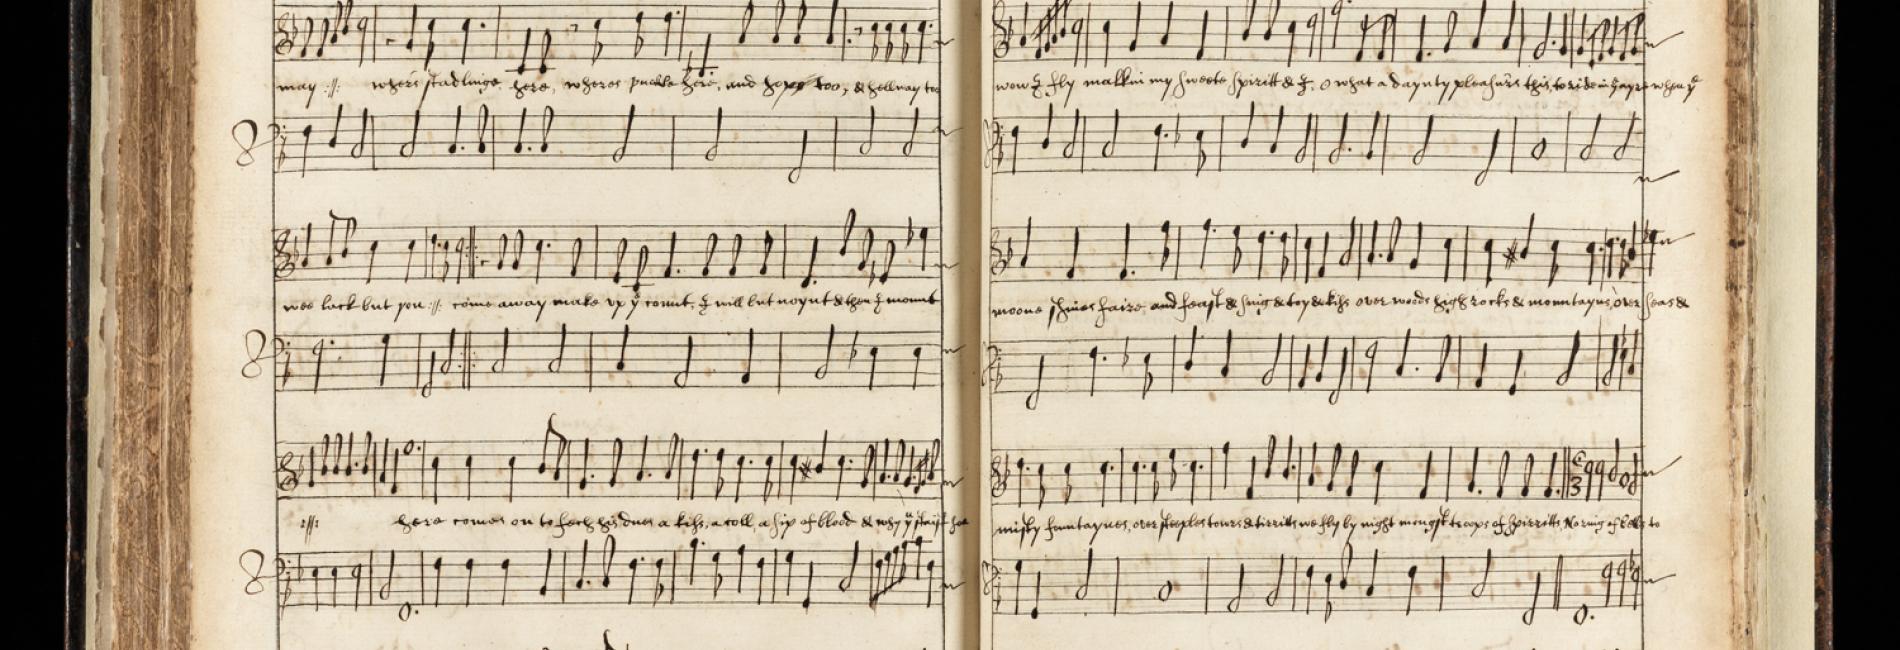 may :||: where's stadlinge here, wheres puckle here, and hopp too, & hellway too
wee lack but you :||: come away make up yᵉ count, I will but noynt & then I mount
:||: here comes on to fech his dues a kiss, a coll, a sip of blood & why yᵘ staist soe
now I fly malkin my sweete spiritt & I, o what a daynty pleasure's this, to ride in yᵉ ayre when yᵉ
moone shines faire and feast & sing & toy & kiss over woods high rocks & mountaynes, over seas &
misty fountaynes, over steeples towrs & tirritts we fly by night mongst troops of spirritts No ring of bells to